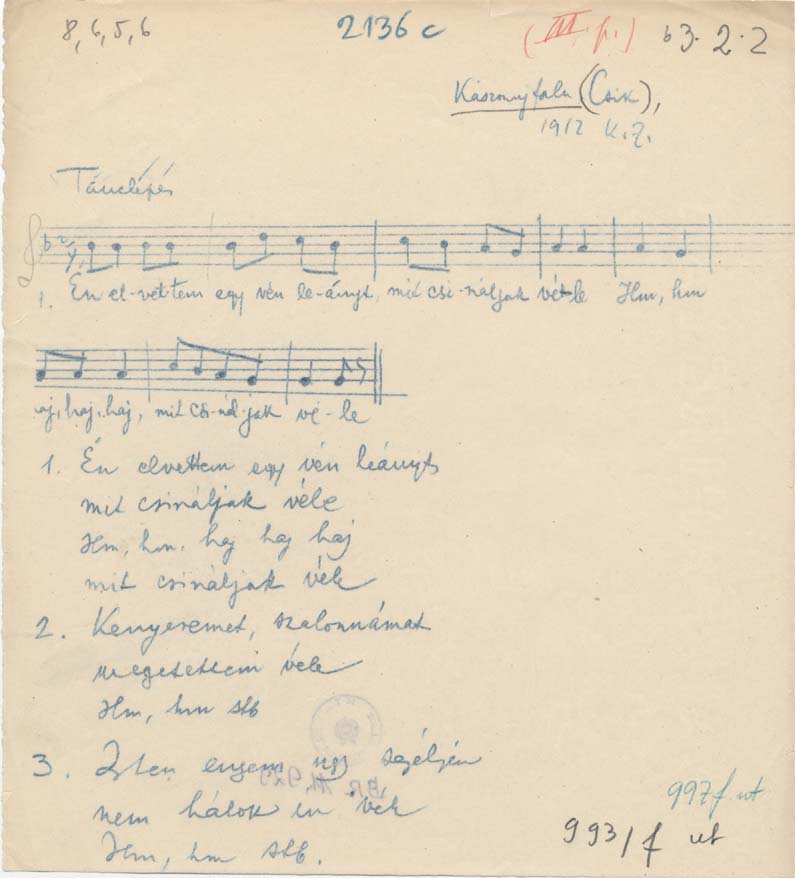 8, 6, 5, 6
2136 c
(III. p.)
b3 · 2 · 2
Kászonujfalu (Csík),
1912 K. Z.
Tánclépés
1. Én el-vet-tem egy vén le-ányt, mit csi-náljak vé-le Hm, hm
aj, haj, haj, mit csi-nál-jak vé-le
1. Én elvettem egy vén leányt
mit csináljak véle
Hm, hm, haj haj haj
mit csináljak véle
2. Kenyeremet, szalonnámat
megetettem véle
Hm, hm stb
3. Isten engem ugy segéljen
nem hálok én véle
Hm, hm stb.
BR 11.923
997 f. ut
993/f ut